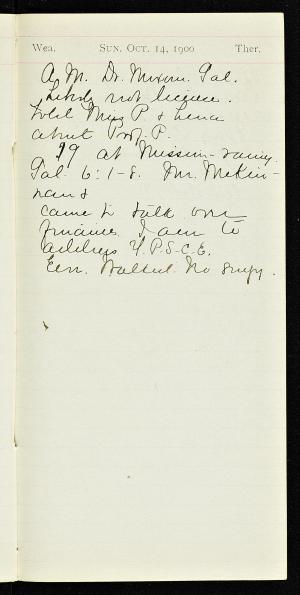 Wea. SUN. OCT. 14, 1900 Ther.
A.M. Dr. Gal.
Likely not license.
Told Miss P. & Lena
about Prof. P.
19 at Mission - rainy.
Gal. 6:1-8. Mr. McKin-
nan &
came to talk over
finances. I am to
address Y.P.S.C.E.
Eve. No